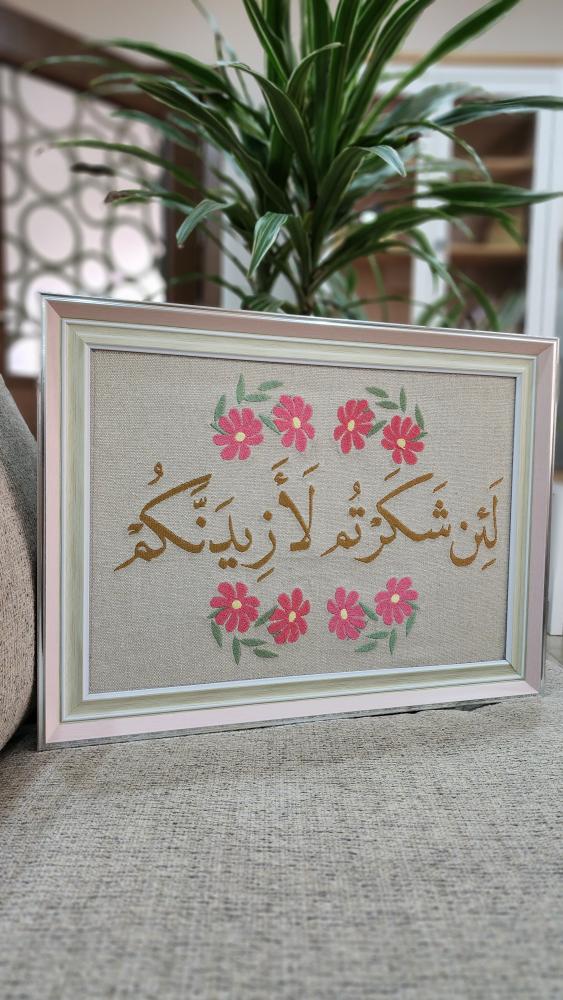 لَئِن شَكَرْتُم لَأَزِيدَنَّكُمْ